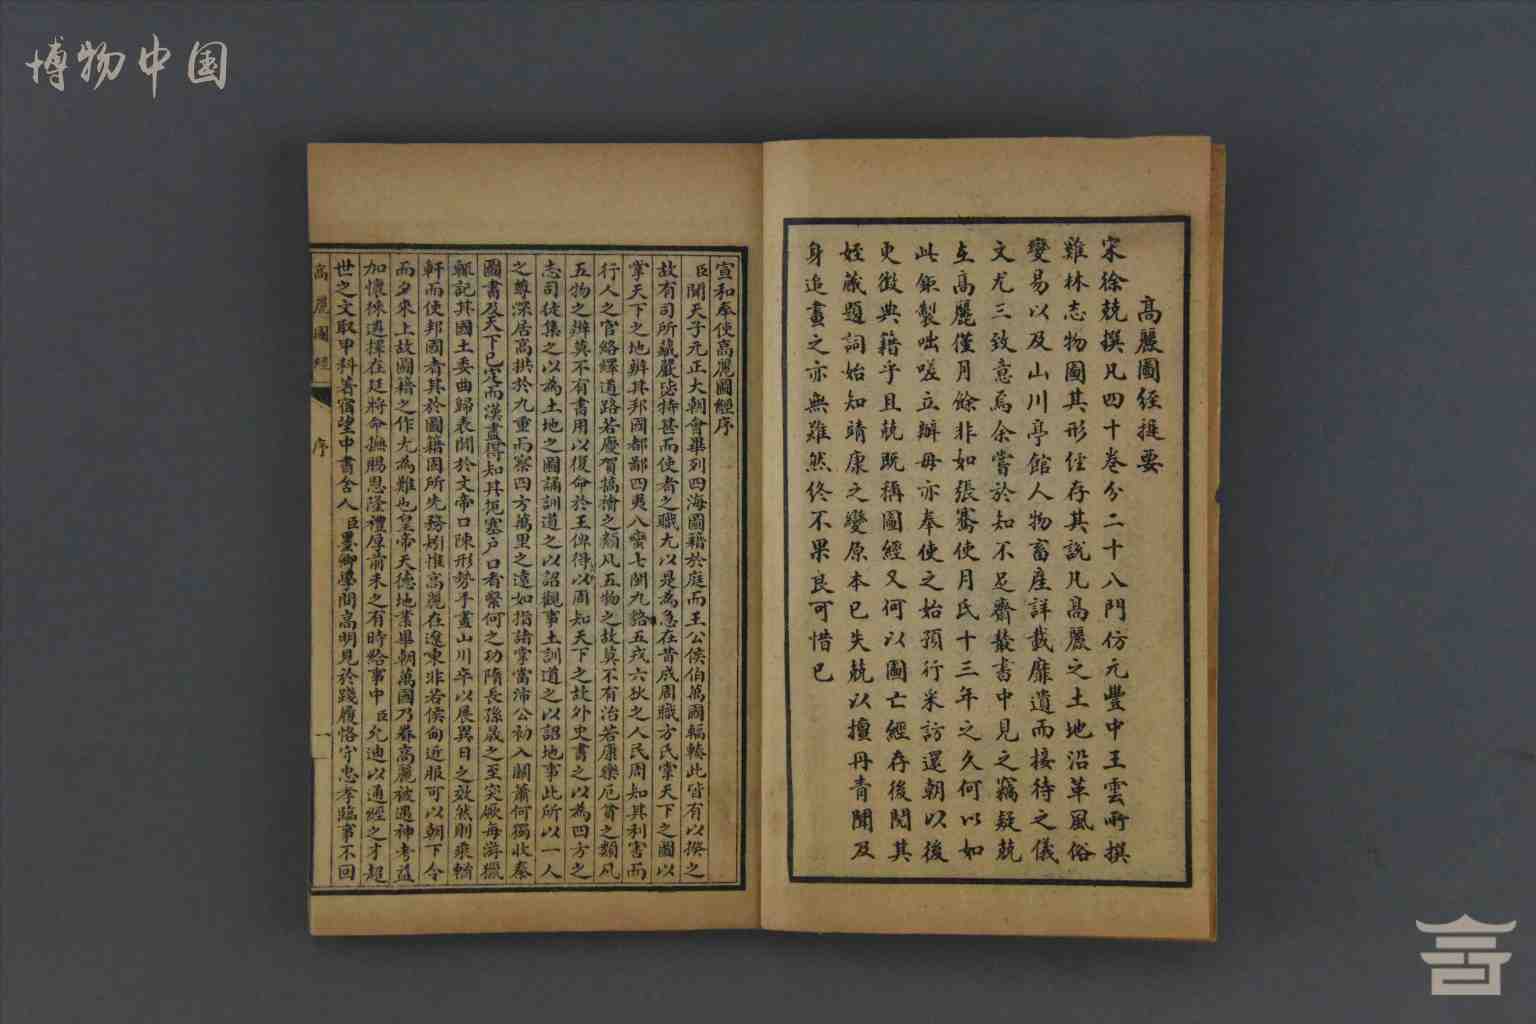 博物中国
高麗圖經提要
宋徐兢撰凡四十卷分二十八門仿元豐中王雲所撰
雞林志物圖其形經存其說凡高麗之土地沿革風俗
變易以及山川亭館人物畜產詳載靡遺而接待之儀
文尤三致意焉余嘗於知不足齋叢書中見之竊疑兢
在高麗僅月餘非如張騫使月氏十三年之久何以如
此鉅製咄嗟立辦毋亦奉使之始預行采訪還朝以後
更徵典籍乎且兢既稱圖經又何以圖亡經存後閱其
姪蕆題詞始知靖康之變原本已失兢以擅丹青聞及
身追畫之亦無難然終不果良可惜已
宣和奉使高麗圖經序
臣聞天子元正大朝會畢列四海圖籍於庭而王公侯伯萬國輻輳此皆有以揆之
故有司所藏嚴毖特甚而使者之職尤以是為急在昔成周職方氏掌天下之圖以
掌天下之地辨其邦國都鄙四夷八蠻七閩九貉五戎六狄之人民周知其利害而
行人之官絡繹道路若慶賀犒禬之類凡五物之故莫不有治若康樂厄貧之類凡
五物之辨莫不有書用以復命於王俾得以周知天下之故外史書之以為四方之
志司徒集之以為土地之圖誦訓道之以詔觀事土訓道之以詔地事此所以一人
之尊深居高拱於九重而察四方萬里之遠如指諸掌當沛公初入關蕭何獨收秦
圖書及天下已定而漢盡得知其扼塞戶口者繫何之功隋長孫晟之至突厥每游獵
輒記其國土委曲歸表聞於文帝口陳形勢手畫山川卒以展異日之效然則乘輶
軒而使邦國者其於圖籍固所先務矧惟高麗在遼東非若侯甸近服可以朝下令
而夕來上故圖籍之作尤為難也皇帝天德地業畢朝萬國乃眷高麗被遇神考益
加懷徠遴擇在廷將命撫賜恩隆禮厚前未之有時給事中臣允迪以通經之才超
世之文取甲科著宿望中書舍人臣墨卿學問高明見於踐履恪守忠孝臨事不回
高麗圖經
序
一